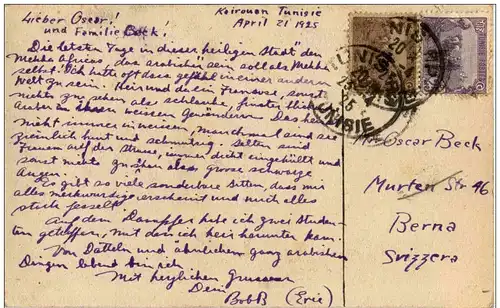 Kairouan Tunisie
April 21 1925
Lieber Oscar!
und Familie Beck!
Die letzten Tage in dieser heiligen Stadt den
Mekka Africas, das arabisher sein soll als Mekka
selbst. Ich hatte oft das gefühl in einer andern
Welt zu sein. hier und da ein Franzose, sonst
nicht zu sehen als schlanke, finster blickende
Araber in ihren weissen Gewändern. Das heisst
nicht immer in weissen, manchmal sind sie
ziemlich bunt und schmutzig. Selten sind
Frauen auf der Strase, immer dicht eingehüllt und
sonst nichts zu sehen als grose schwarze
Augen.
Es gibt so viele sonderbare Sitten, dass mir
alles merkwürdig erscheint und mich alles
stark fesselt.
Auf dem Dampfer habe ich zwei Studen-
ten getroffen, mit den ich hier herunter kam.
Von Datteln und ähnlichem ganz arabischen
Dingen lebend bin ich
Mit herzlichen Grussen
Dein
BobB (Eric)
TUNIS
TUNISIE
Oscar Beck
Murten Str 46
Berna
Svizzera